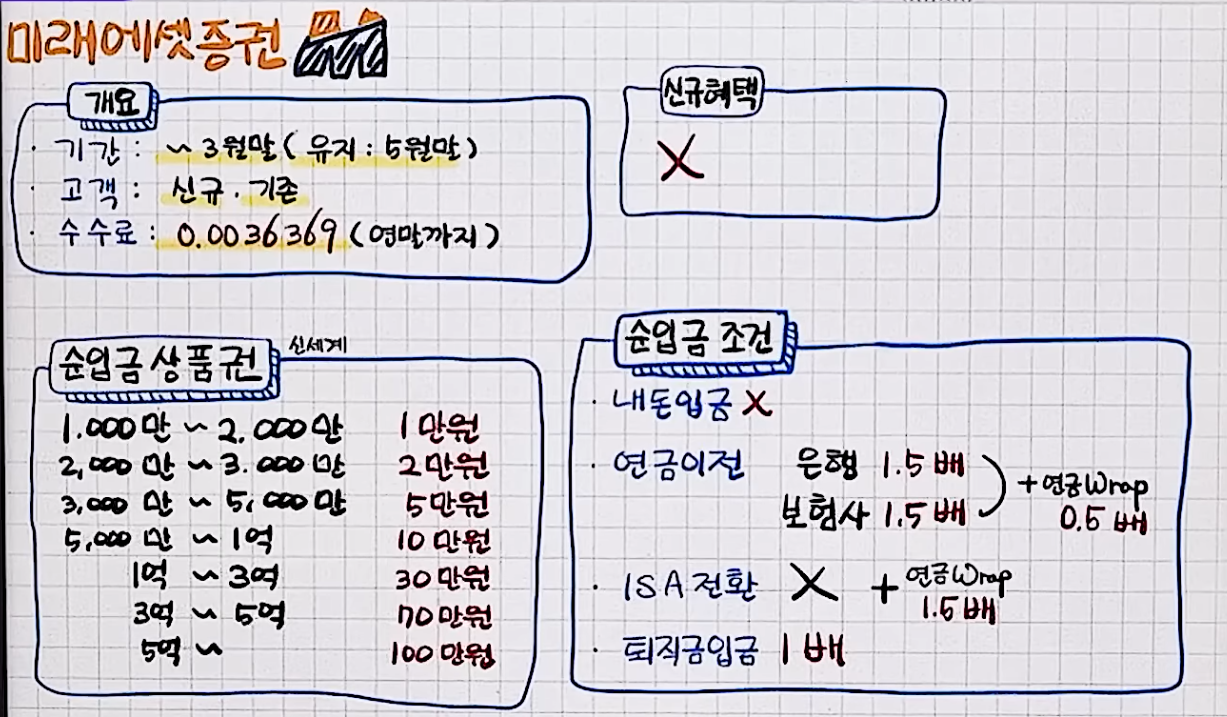 미래에셋증권
개요
· 기간 : ~ 3월말 ( 유지 : 5월말 )
· 고객 : 신규 . 기존
· 수수료 : 0.0036369 (연말까지)
신규혜택
X
순입금 상품권 신세계
1.000만 ~ 2.000만 1만원
2,000만 ~ 3.000만 2만원
3,000만 ~ 5,000만 5만원
5,000만 ~ 1억 10만원
1억 ~ 3억 30만원
3억 ~ 5억 70만원
5억 ~ 100만원
순입금 조건
· 내돈입금 X
· 연금이전 은행 1.5배
보험사 1.5배
+연금Wrap
0.5배
· ISA전환 X + 연금Wrap
1.5배
· 퇴직금입금 1배